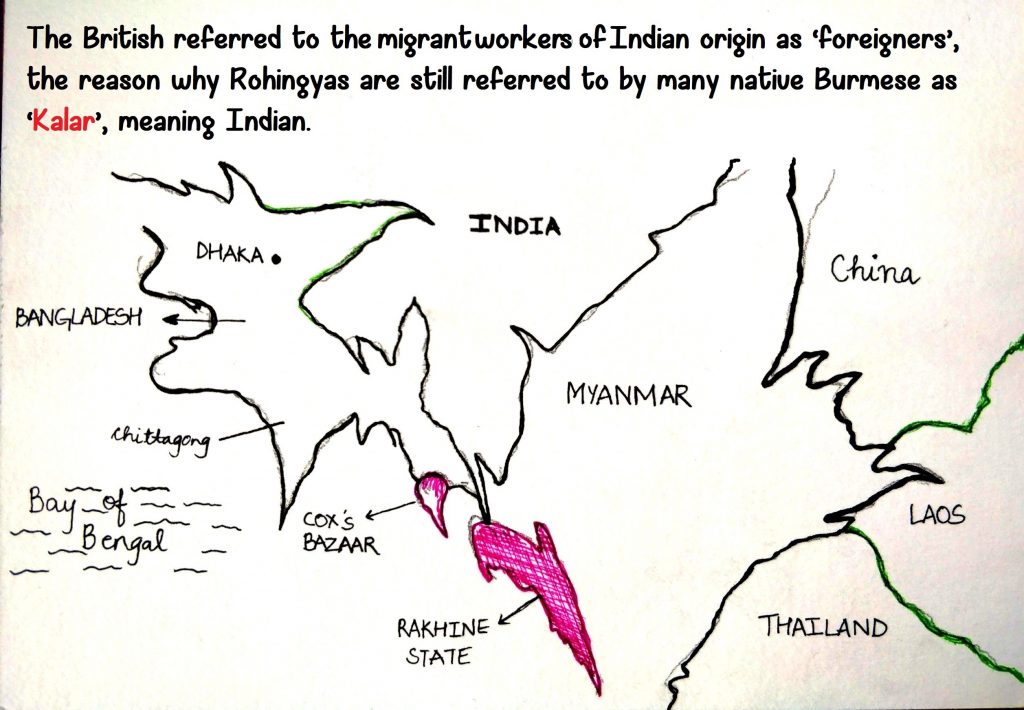 The British referred to the migrant workers of Indian origin as ‘foreigners’,
the reason why Rohingyas are still referred to by many native Burmese as
‘Kalar’, meaning Indian.
INDIA
DHAKA
China
BANGLADESH
MYANMAR
Chittagong
Bay of
Bengal
COX'S
BAZAAR
LAOS
RAKHINE
STATE
THAILAND